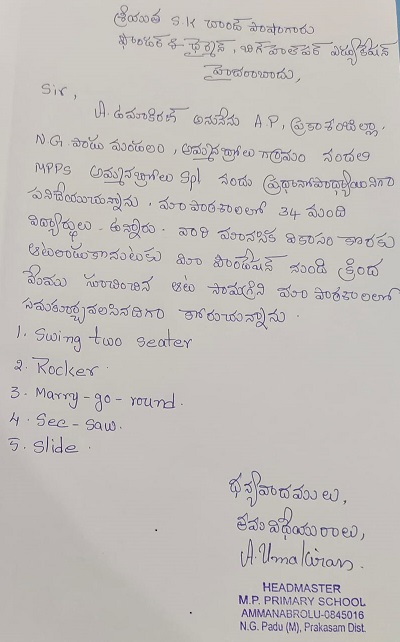 శ్రీయుత S.K చాంద్ పాషాగారు
ఫౌండర్ & ఛైర్మన్, బిగ్ హెల్ప్ ఎడ్యుకేషన్
హైదరాబాదు,
Sir,
A. ఉమాకిరణ్ అనునేను A.P, ప్రకాశంజిల్లా
N.G. పాడు మండలం, అమ్మనబ్రోలు గ్రామం నందలి
MPPS అమ్మనబ్రోలు Spl నందు ప్రధానోపాధ్యాయినిగా
పనిచేయుచున్నాను. మా పాఠశాలలో 34 మంది
విద్యార్థులు ఉన్నారు. వారి మానసిక వికాసం కొరకు
ఆటలాడుకొనుటకు మీ ఫౌండేషన్ నుండి క్రింద
మేము సూచించిన ఆట సామగ్రిని మా పాఠశాలలో
సమకూర్చవలసినదిగా కోరుచున్నాను.
1. Swing two seater
2. Rocker.
3. Marry-go-round.
4. See-saw.
5. Slide.
ధన్యవాదములు,
తమ విధేయురాలు,
A. Umakiran.
HEADMASTER
M.P. PRIMARY SCHOOL
AMMANABROLU-0845016
N.G. Padu (M), Prakasam Dist.